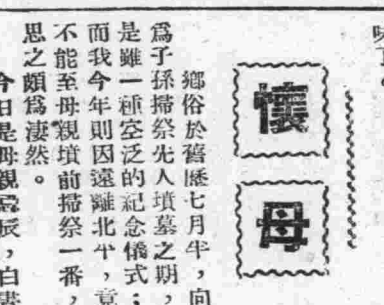 懷母
鄉俗於舊歷七月半，向
爲子孫掃祭先人墳墓之期，
是雖一種空泛的紀念儀式；
而我今年則因遠離北平，竟
不能至母親墳前掃祭一番，
思之頗爲凄然。
今日是母親忌辰，白晝